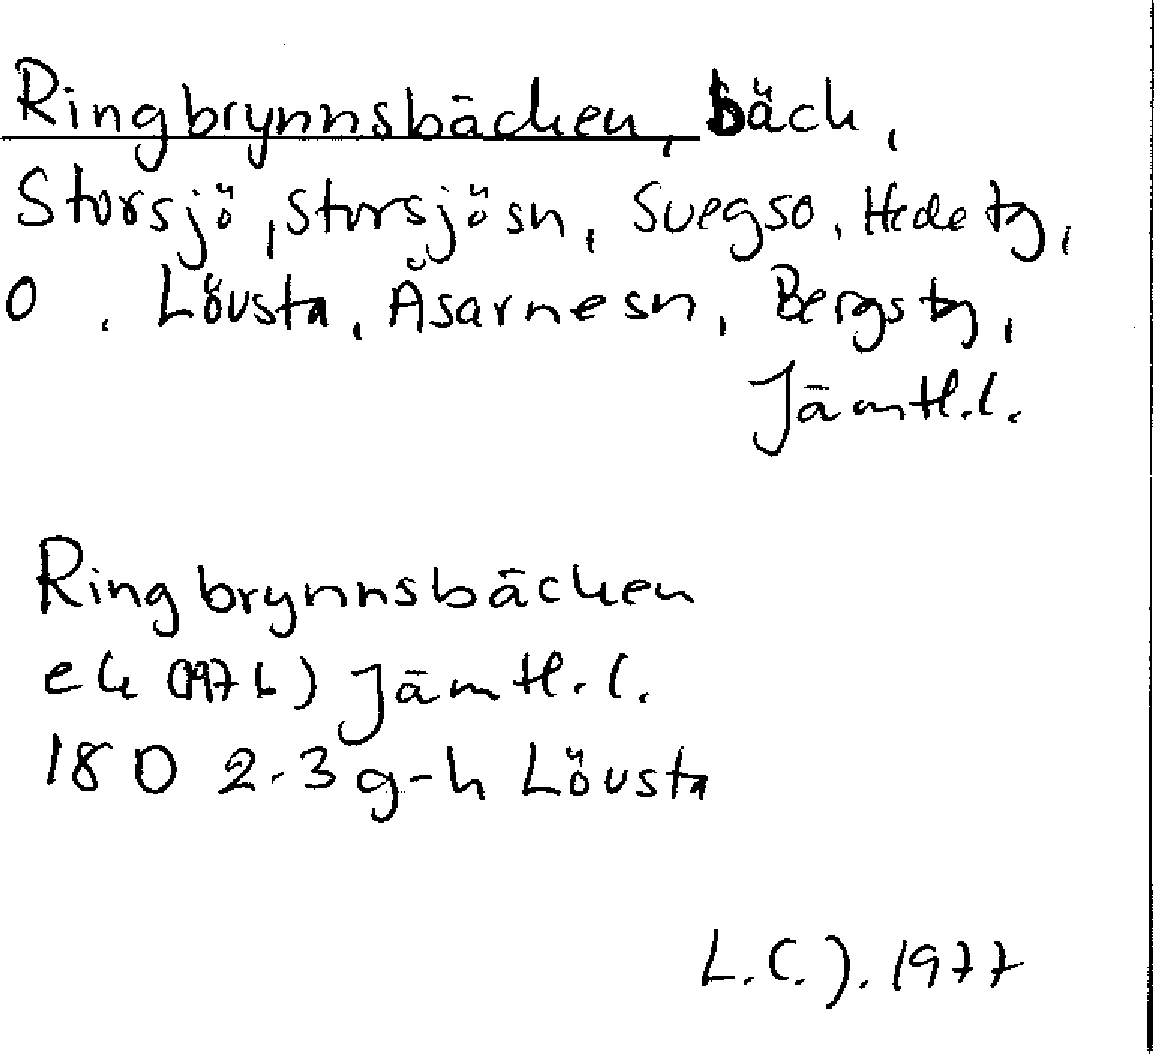 Ringbrynnsbäcken, bäck,
Storsjö, Storsjösn, Svegso, Hede tg,
O. Lövsta, Åsarnesn, Bergstg,
Jämtl.l.
Ringbrynnsbäcken
ek (1976) Jämtl.l.
18D 2-3g-h Lövsta
L.C.J. 1977